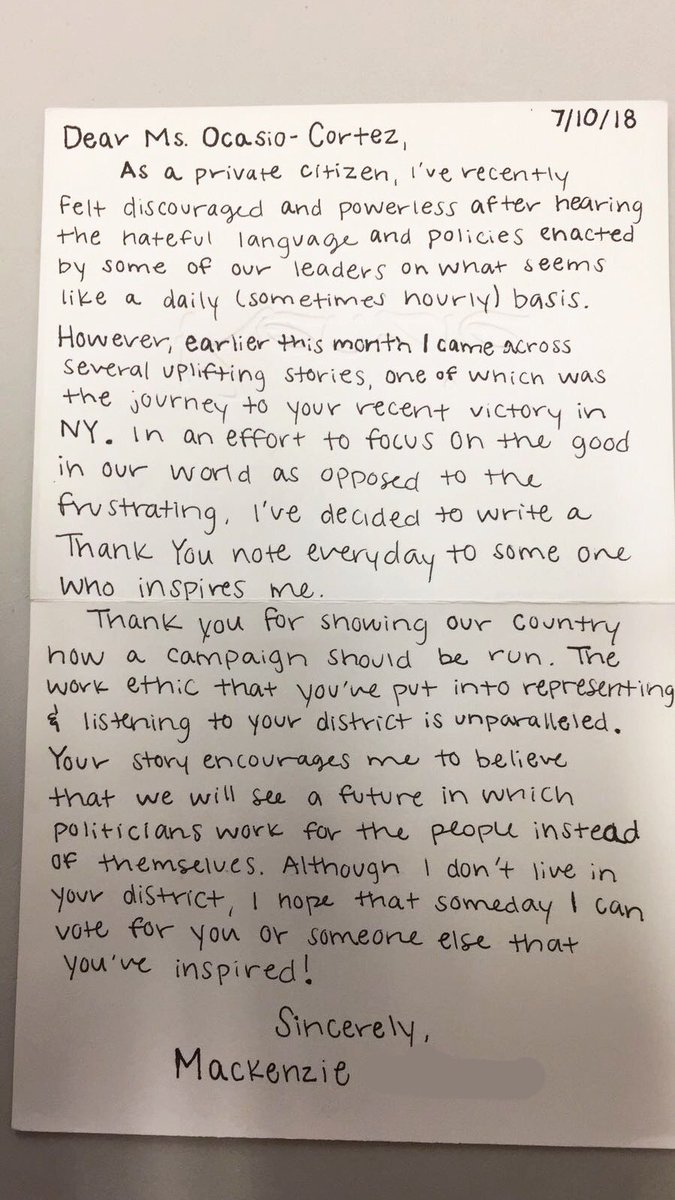 7/10/18
Dear Ms. Ocasio-Cortez,
As a private citizen, I've recently
felt discouraged and powerless after hearing
the hateful language and policies enacted
by some of our leaders on what seems
like a daily (sometimes hourly) basis.
However, earlier this month I came across
several uplifting stories, one of which was
the journey to your recent victory in
NY. In an effort to focus on the good
in our world as opposed to the
frustrating, I've decided to write a
Thank You note everyday to some one
who inspires me.
Thank you for showing our country
how a campaign should be run. The
work ethic that you've put into representing
& listening to your district is unparalleled.
Your story encourages me to believe
that we will see a future in which
politicians work for the people instead
of themselves. Although I don't live in
your district, I hope that someday I can
vote for you or someone else that
you've inspired!
Sincerely,
Mackenzie